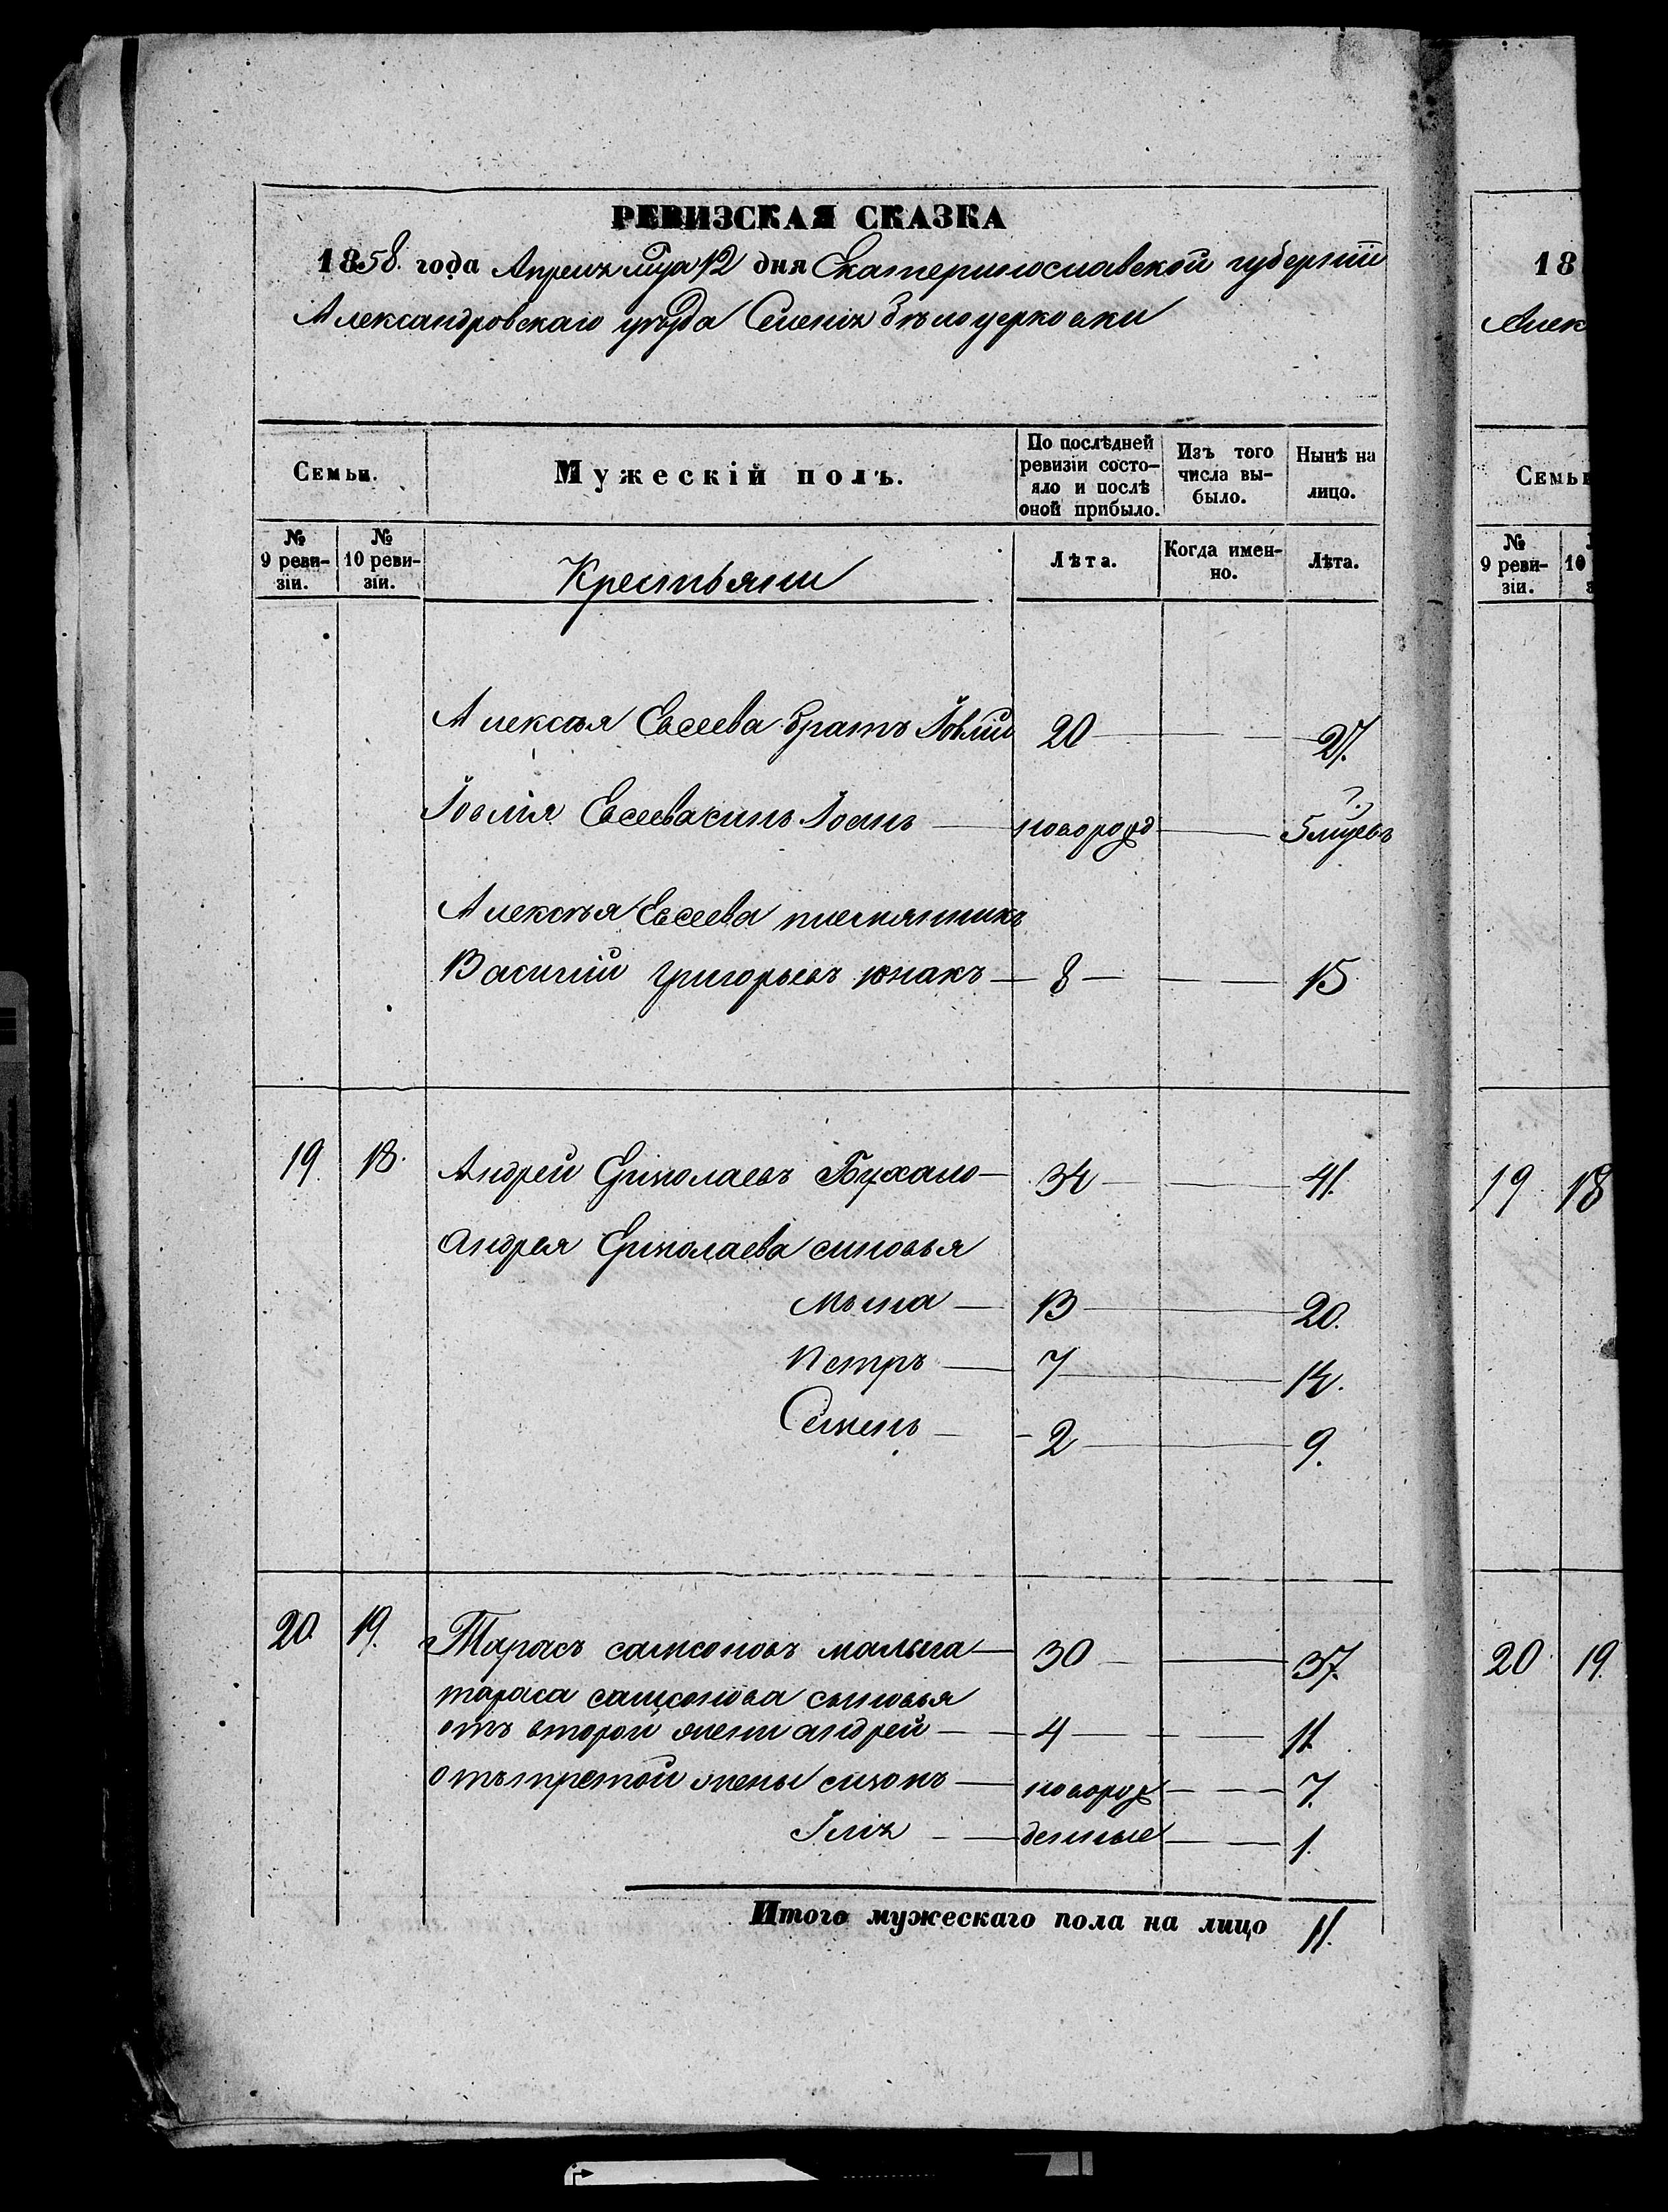 РЕВИЗСКАЯ СКАЗКА
1858. года Апреля мца 12 дня Екатеринославской губернии
Александровскаго уѣзда Селенія Бѣлоцерковки
Семьи.
Мужескій полъ.
По послѣдней ревизіи состо-
яло и послѣ
оной прибыло.
Изъ того
числа вы-
было.
Нынѣ на
лицо.
№
9 реви-
зіи.
№
10 реви-
зіи.
Крестьяни
Лѣта.
Когда имен-
но.
Лѣта.
Алексѣя Евсеева братъ Іовлій 20 27.
Іовлія Евсеева синъ Іоанъ новорожд 5 мцевъ
Алексѣя Евсеева племянникъ
Василій Григорьевъ юнакъ 8 15
19. 18. Андрей Ермолаевъ Бухало 34 41.
Андрея Ермолаева синовья
13 20.
Петръ 7 14.
Семенъ 2 9.
20. 19. Тарасъ самсоновъ малыга 30 37.
тараса самсонова сыновья
отъ второй жени андрей 4 11.
отъ третой жены новорож 7.
Ілія денные 1.
Итого мужескаго пола на лицо 11.
18
Алек
Семьи
№
9 реви-
зіи.
10
19 18
20 19.